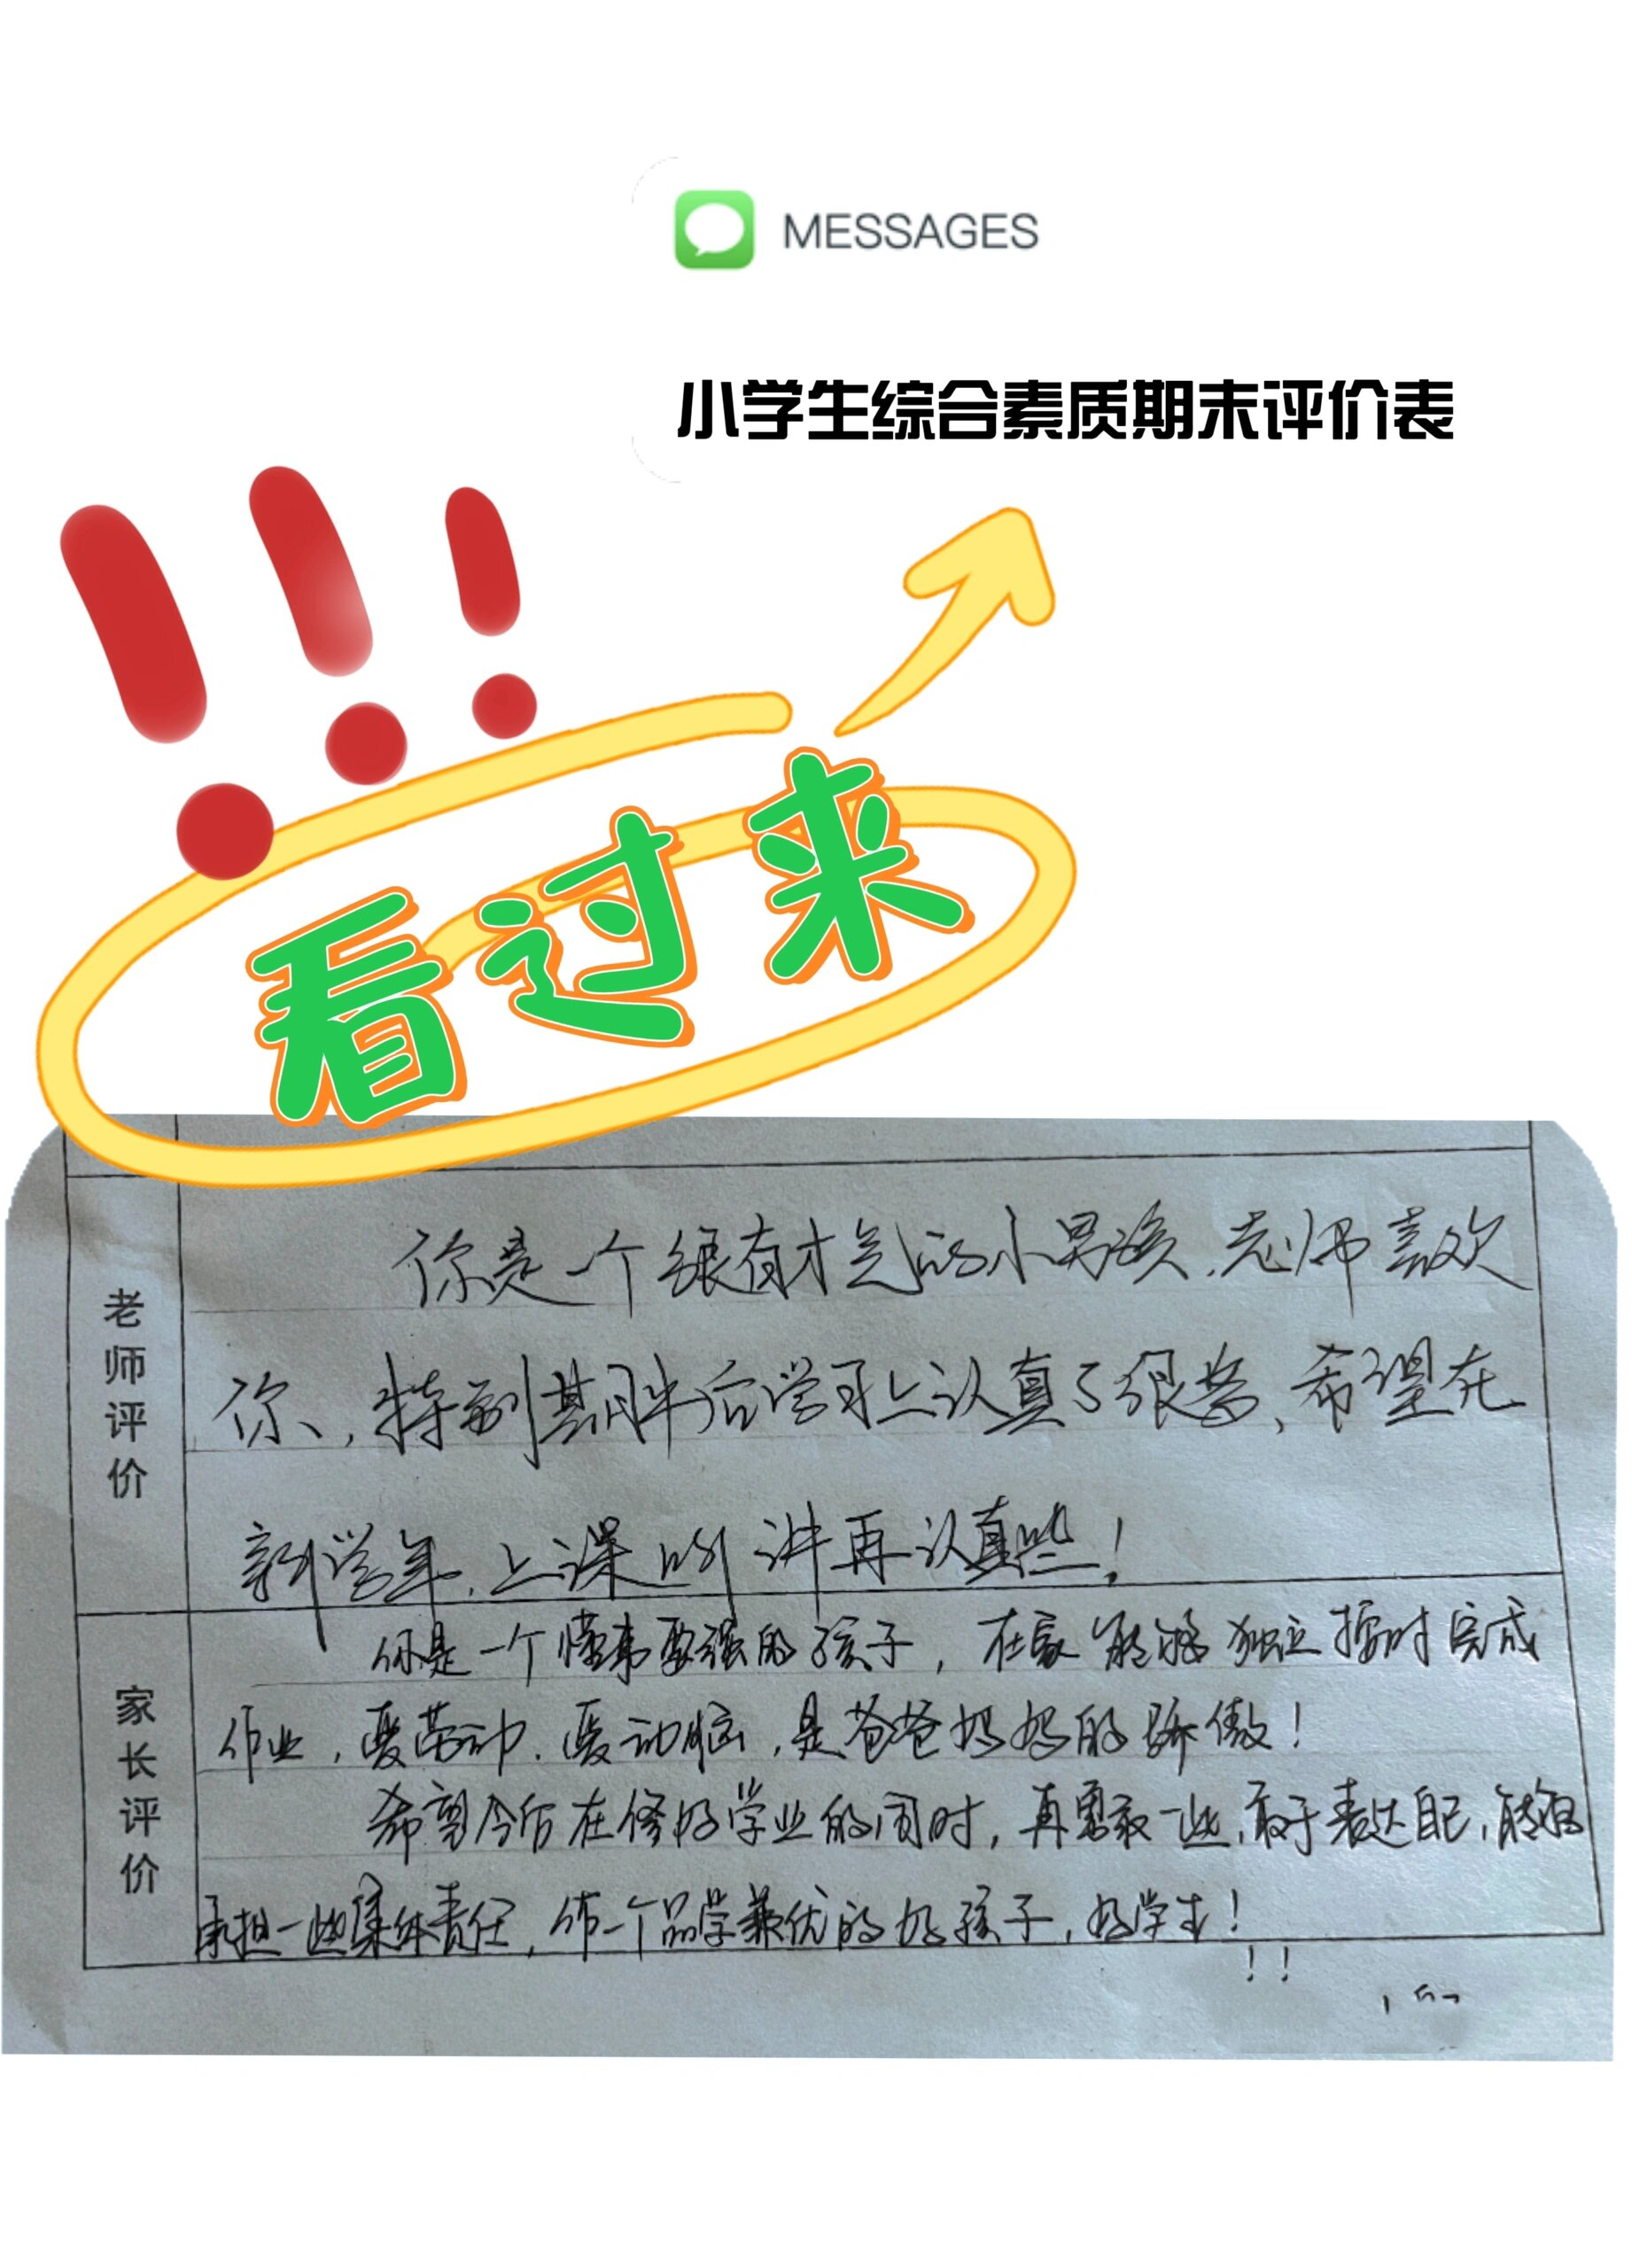 MESSAGES
小学生综合素质期末评价表
看过来
老师评价
你是一个很有才气的小男孩,老师喜欢
你,特别期中后学习上认真了很多,希望在
新学年,上课听讲再认真些!
家长评价
你是一个懂事要强的孩子,在家能够独立按时完成
作业,爱劳动、爱动脑,是爸爸妈妈的骄傲!
希望今后在修好学业的同时,再勇敢一些,敢于表达自己,能够
承担一些集体责任,做一个品学兼优的好孩子,好学生!